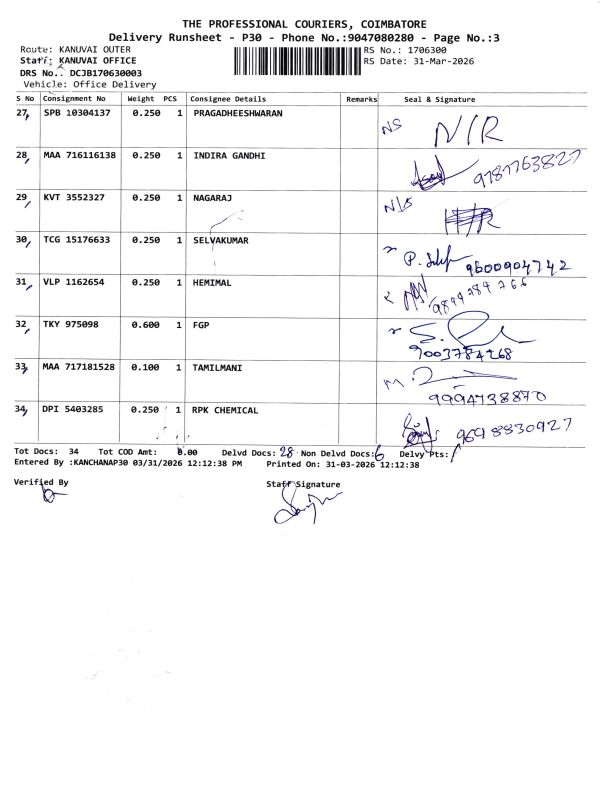 THE PROFESSIONAL COURIERS, COIMBATORE
Delivery Runsheet - P30 - Phone No.:9047080280 - Page No.:3
Route: KANUVAI OUTER RS No.: 1706300
Staff: KANUVAI OFFICE RS Date: 31-Mar-2026
DRS No.. DCJB170630003
Vehicle: Office Delivery
S No Consignment No Weight PCS Consignee Details Remarks Seal & Signature
27 SPB 10304137 0.250 1 PRAGADHEESHWARAN NS N/R
28 MAA 716116138 0.250 1 INDIRA GANDHI 9787763827
29 KVT 3552327 0.250 1 NAGARAJ N/S
30 TCG 15176633 0.250 1 SELVAKUMAR 9600904742
31 VLP 1162654 0.250 1 HEMIMAL 9894784766
32 TKY 975098 0.600 1 FGP 9003784268
33 MAA 717181528 0.100 1 TAMILMANI 9994738870
34 DPI 5403285 0.250 1 RPK CHEMICAL 9698830927
Tot Docs: 34 Tot COD Amt: 0.00 Delvd Docs: 28 Non Delvd Docs: 6 Delvy Pts:
Entered By :KANCHANAP30 03/31/2026 12:12:38 PM Printed On: 31-03-2026 12:12:38
Verified By Staff Signature